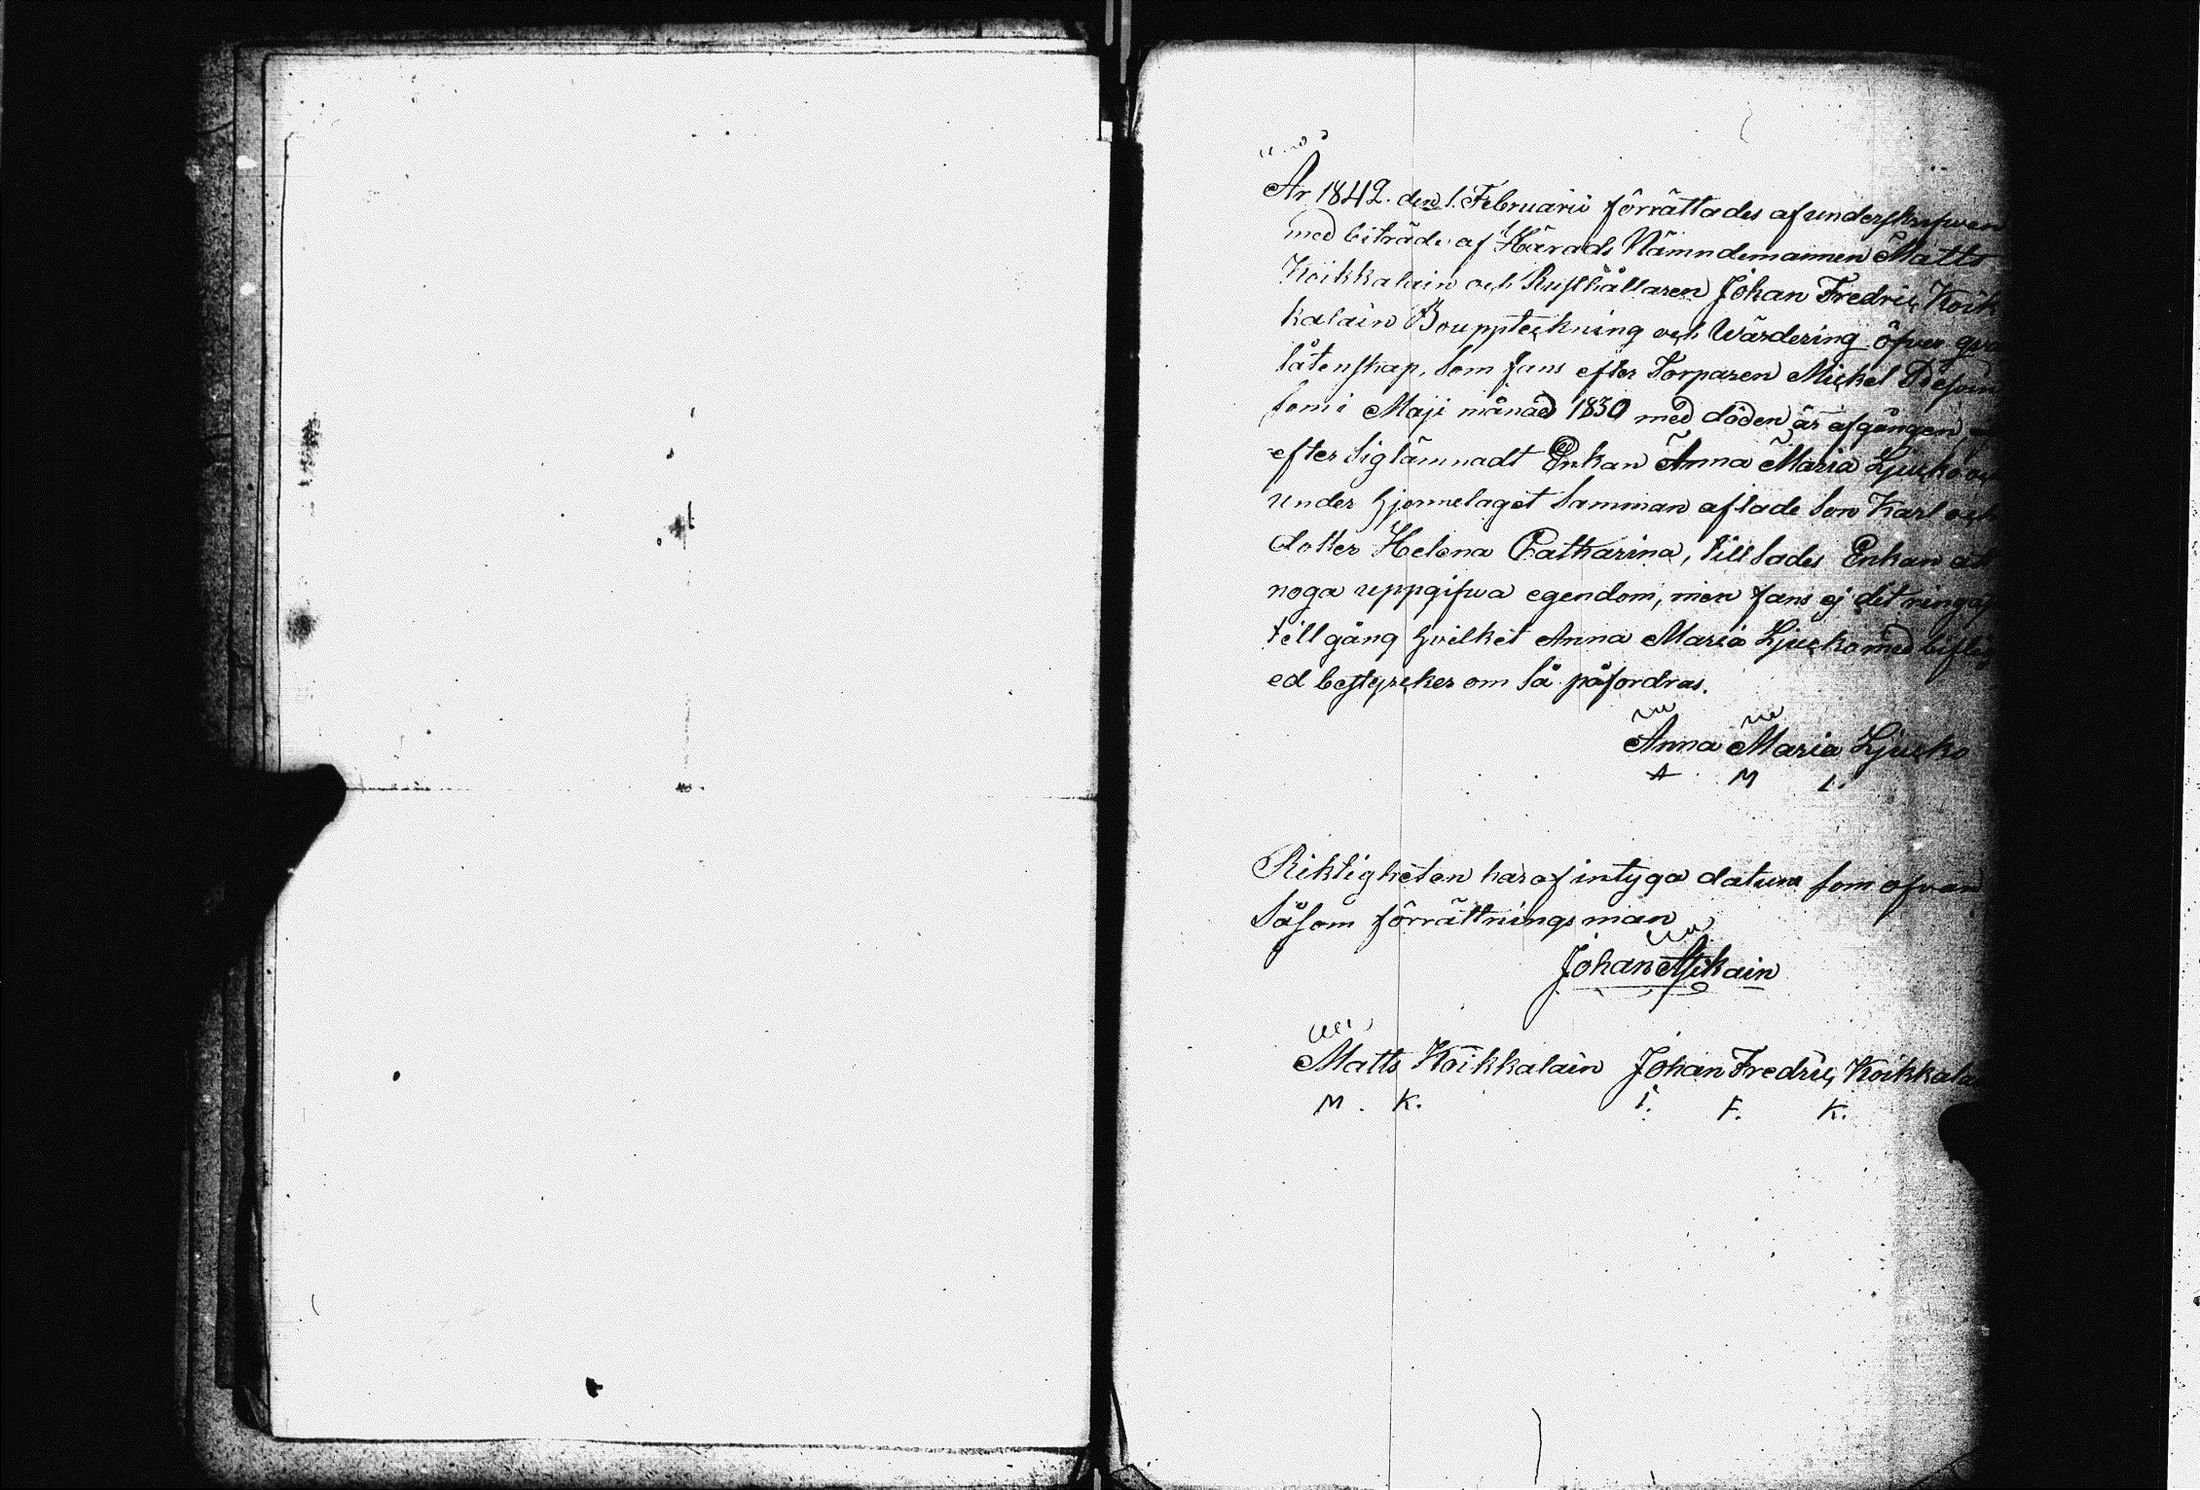 År 1842. den 1. Februarii förrättades af underskrifwen
med biträde af Härads Nämndemannen Matts
Koikkalain och Rusthållaren Johan Fredric Koik
kalain Bouppteckning och Wärdering öfver qvar
låtenskap, som fans efter Torparen Mickel
som i Maji månad 1830 med döden är afgången,
efter sig lämnadt Enkan Anna Maria Ljucko och
under hjonnelaget samman aflade Son Karl och
doter Helena Catharina, tillsades Enkan at
noga uppgifwa egendom, men fans ej det ringa
tillgång hvilket Anna Maria Ljucko med
ed bestyrcker om så påfordras.
Anna Maria Ljucko
A M L.
Riktigheten haraf intyga datum som ofvan
Såsom förrättningsman
Johan
Matts Koikkalain Johan Fredric Koikkalain
M. K. I. F. K.